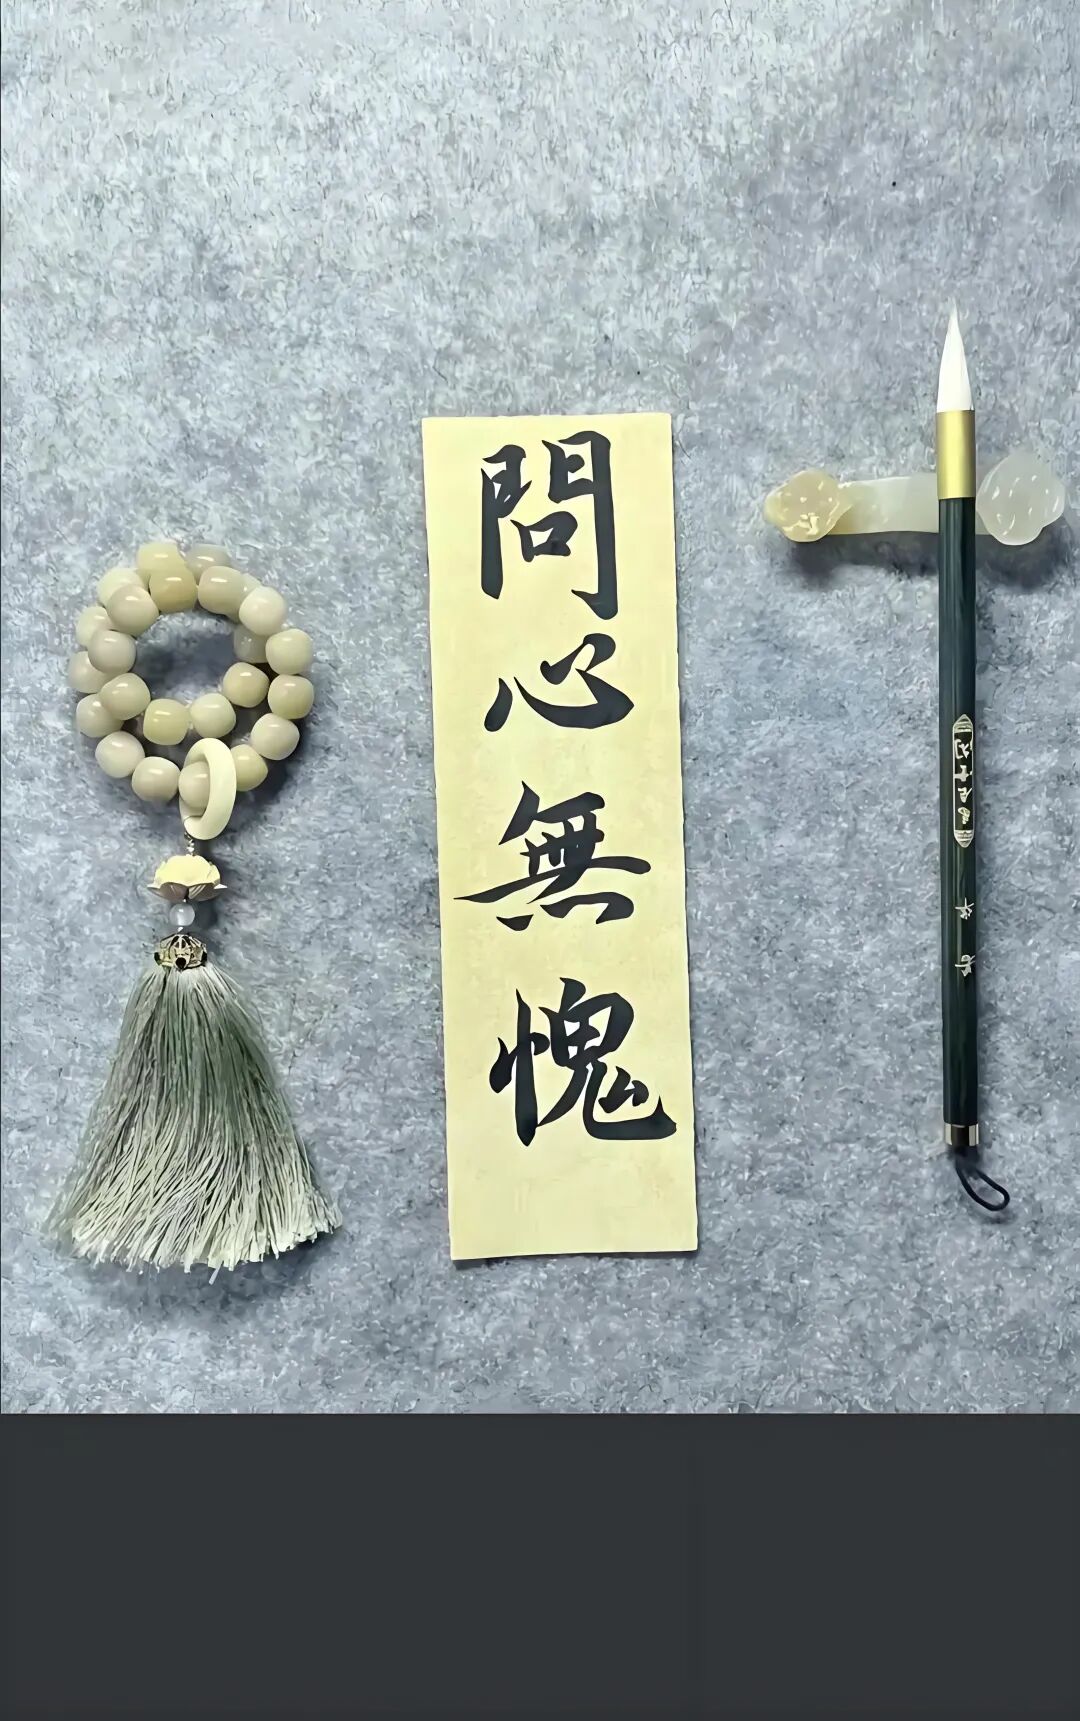 問心無愧